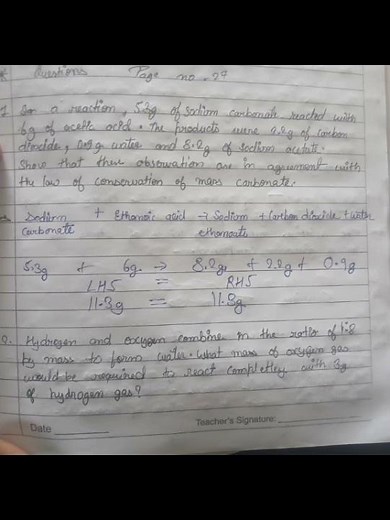 Questions Page no. 27
In a reaction, 5.3g of sodium carbonate reacted with
6g of acetic acid. The products were 2.2g of carbon
dioxide, 0.9g water and 8.2g of sodium acetate.
Show that these observation are in agreement with
the law of conservation of mass carbonate.
Sodium + Ethanoic acid → Sodium + Carbon dioxide + water
carbonate ethanoate
5.3g + 6g → 8.2g + 2.2g + 0.9g
LHS = RHS
11.3g = 11.3g
Hydrogen and oxygen combine in the ratio of 1:8
by mass to form water. What mass of oxygen gas
would be required to react completley with 3g
of hydrogen gas?
Date Teacher's Signature: